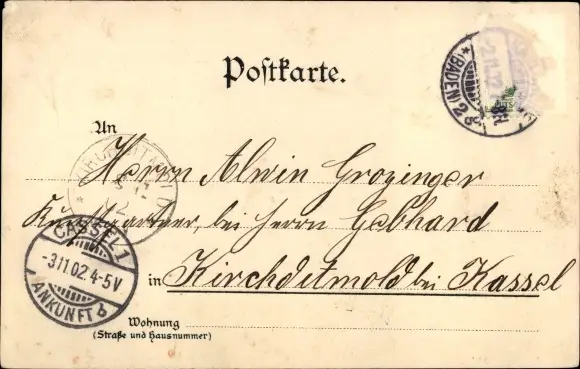 Postkarte.
(BADEN) 2
2.11.02
An
Herrn Alwin Grozinger
bei Herrn Gebhard
in Kirchditmold bei Kassel
CASSEL 1
-3.11.02 4-5V
ANKUNFT
Wohnung
(Straße und Hausnummer)